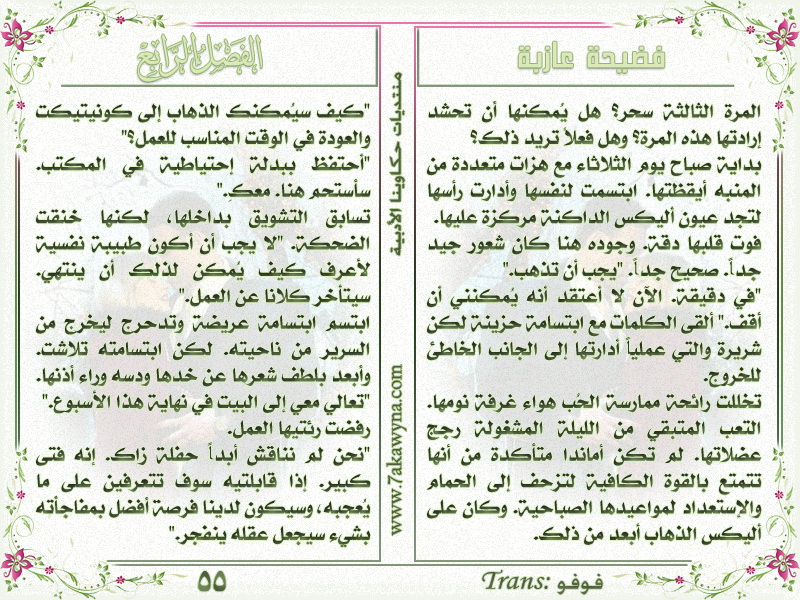 فضيحة عازبة
المرة الثالثة سحر؟ هل يُمكنها أن تحشد
إرادتها هذه المرة؟ وهل فعلاً تريد ذلك؟
بداية صباح يوم الثلاثاء مع هزات متعددة من
المنبه أيقظتها. ابتسمت لنفسها وأدارت رأسها
لتجد عيون أليكس الداكنة مركزة عليها.
فوت قلبها دقة. وجوده هنا كان شعور جيد
جداً. صحيح جداً. "يجب أن تذهب."
"في دقيقة. الآن لا أعتقد أنه يُمكنني أن
أقف." ألقى الكلمات مع ابتسامة حزينة لكن
شريرة والتي عملياً أدارتها إلى الجانب الخاطئ
للخروج.
تخللت رائحة ممارسة الحُب هواء غرفة نومها.
التعب المتبقي من الليلة المشغولة رجج
عضلاتها. لم تكن أماندا متأكدة من أنها
تتمتع بالقوة الكافية لتزحف إلى الحمام
والإستعداد لمواعيدها الصباحية. وكان على
أليكس الذهاب أبعد من ذلك.
Trans: فوفو
منتديات حكاوينا الأدبية
www.7akawyna.com
الفصل الرابع
"كيف سيُمكنك الذهاب إلى كونيتيكت
والعودة في الوقت المناسب للعمل؟"
"أحتفظ ببدلة إحتياطية في المكتب.
سأستحم هنا. معك."
تسابق التشويق بداخلها، لكنها خنقت
الضحكة. "لا يجب أن أكون طبيبة نفسية
لأعرف كيف يُمكن لذلك أن ينتهي.
سيتأخر كلانا عن العمل."
ابتسم ابتسامة عريضة وتدحرج ليخرج من
السرير من ناحيته. لكن ابتسامته تلاشت.
وأبعد بلطف شعرها عن خدها ودسه وراء أذنها.
"تعالي معي إلى البيت في نهاية هذا الأسبوع."
رفضت رئتيها العمل.
"نحن لم نناقش أبداً حفلة زاك. إنه فتى
كبير. إذا قابلتيه سوف تتعرفين على ما
يُعجبه، وسيكون لدينا فرصة أفضل بمفاجأته
بشيء سيجعل عقله ينفجر."
٥٥